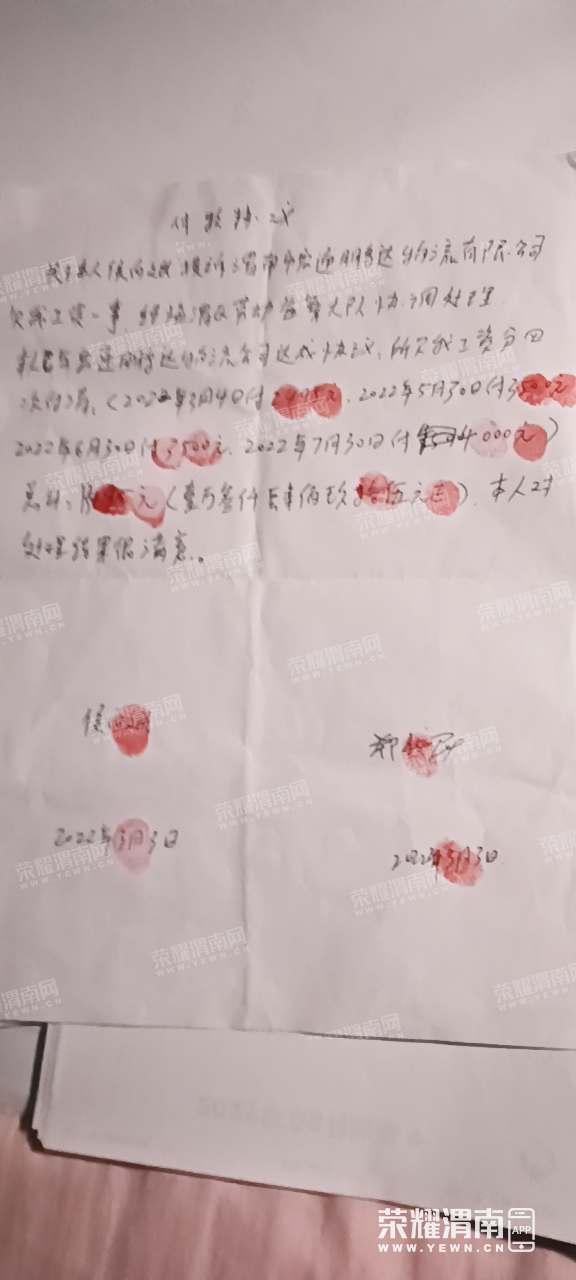 付款协议
关于本人侯 投诉渭南市宏运腾达物流有限公司
欠我工资一事 经临渭区劳动监察大队协调处理
我已与宏运腾达物流公司达成协议，所欠我工资分四
次付清，（2022年3月4日付 元，2022年5月30日付3500元
2022年6月30日付3500元，2022年7月30日付 4000元）
总计： 元（壹万叁仟 佰玖拾伍元正）。本人对
处理结果很满意。
侯
郑
2022年3月3日
2022年3月3日
荣耀渭南网
WWW.YEWN.CN
荣耀渭南 APP
WWW.YEWN.CN